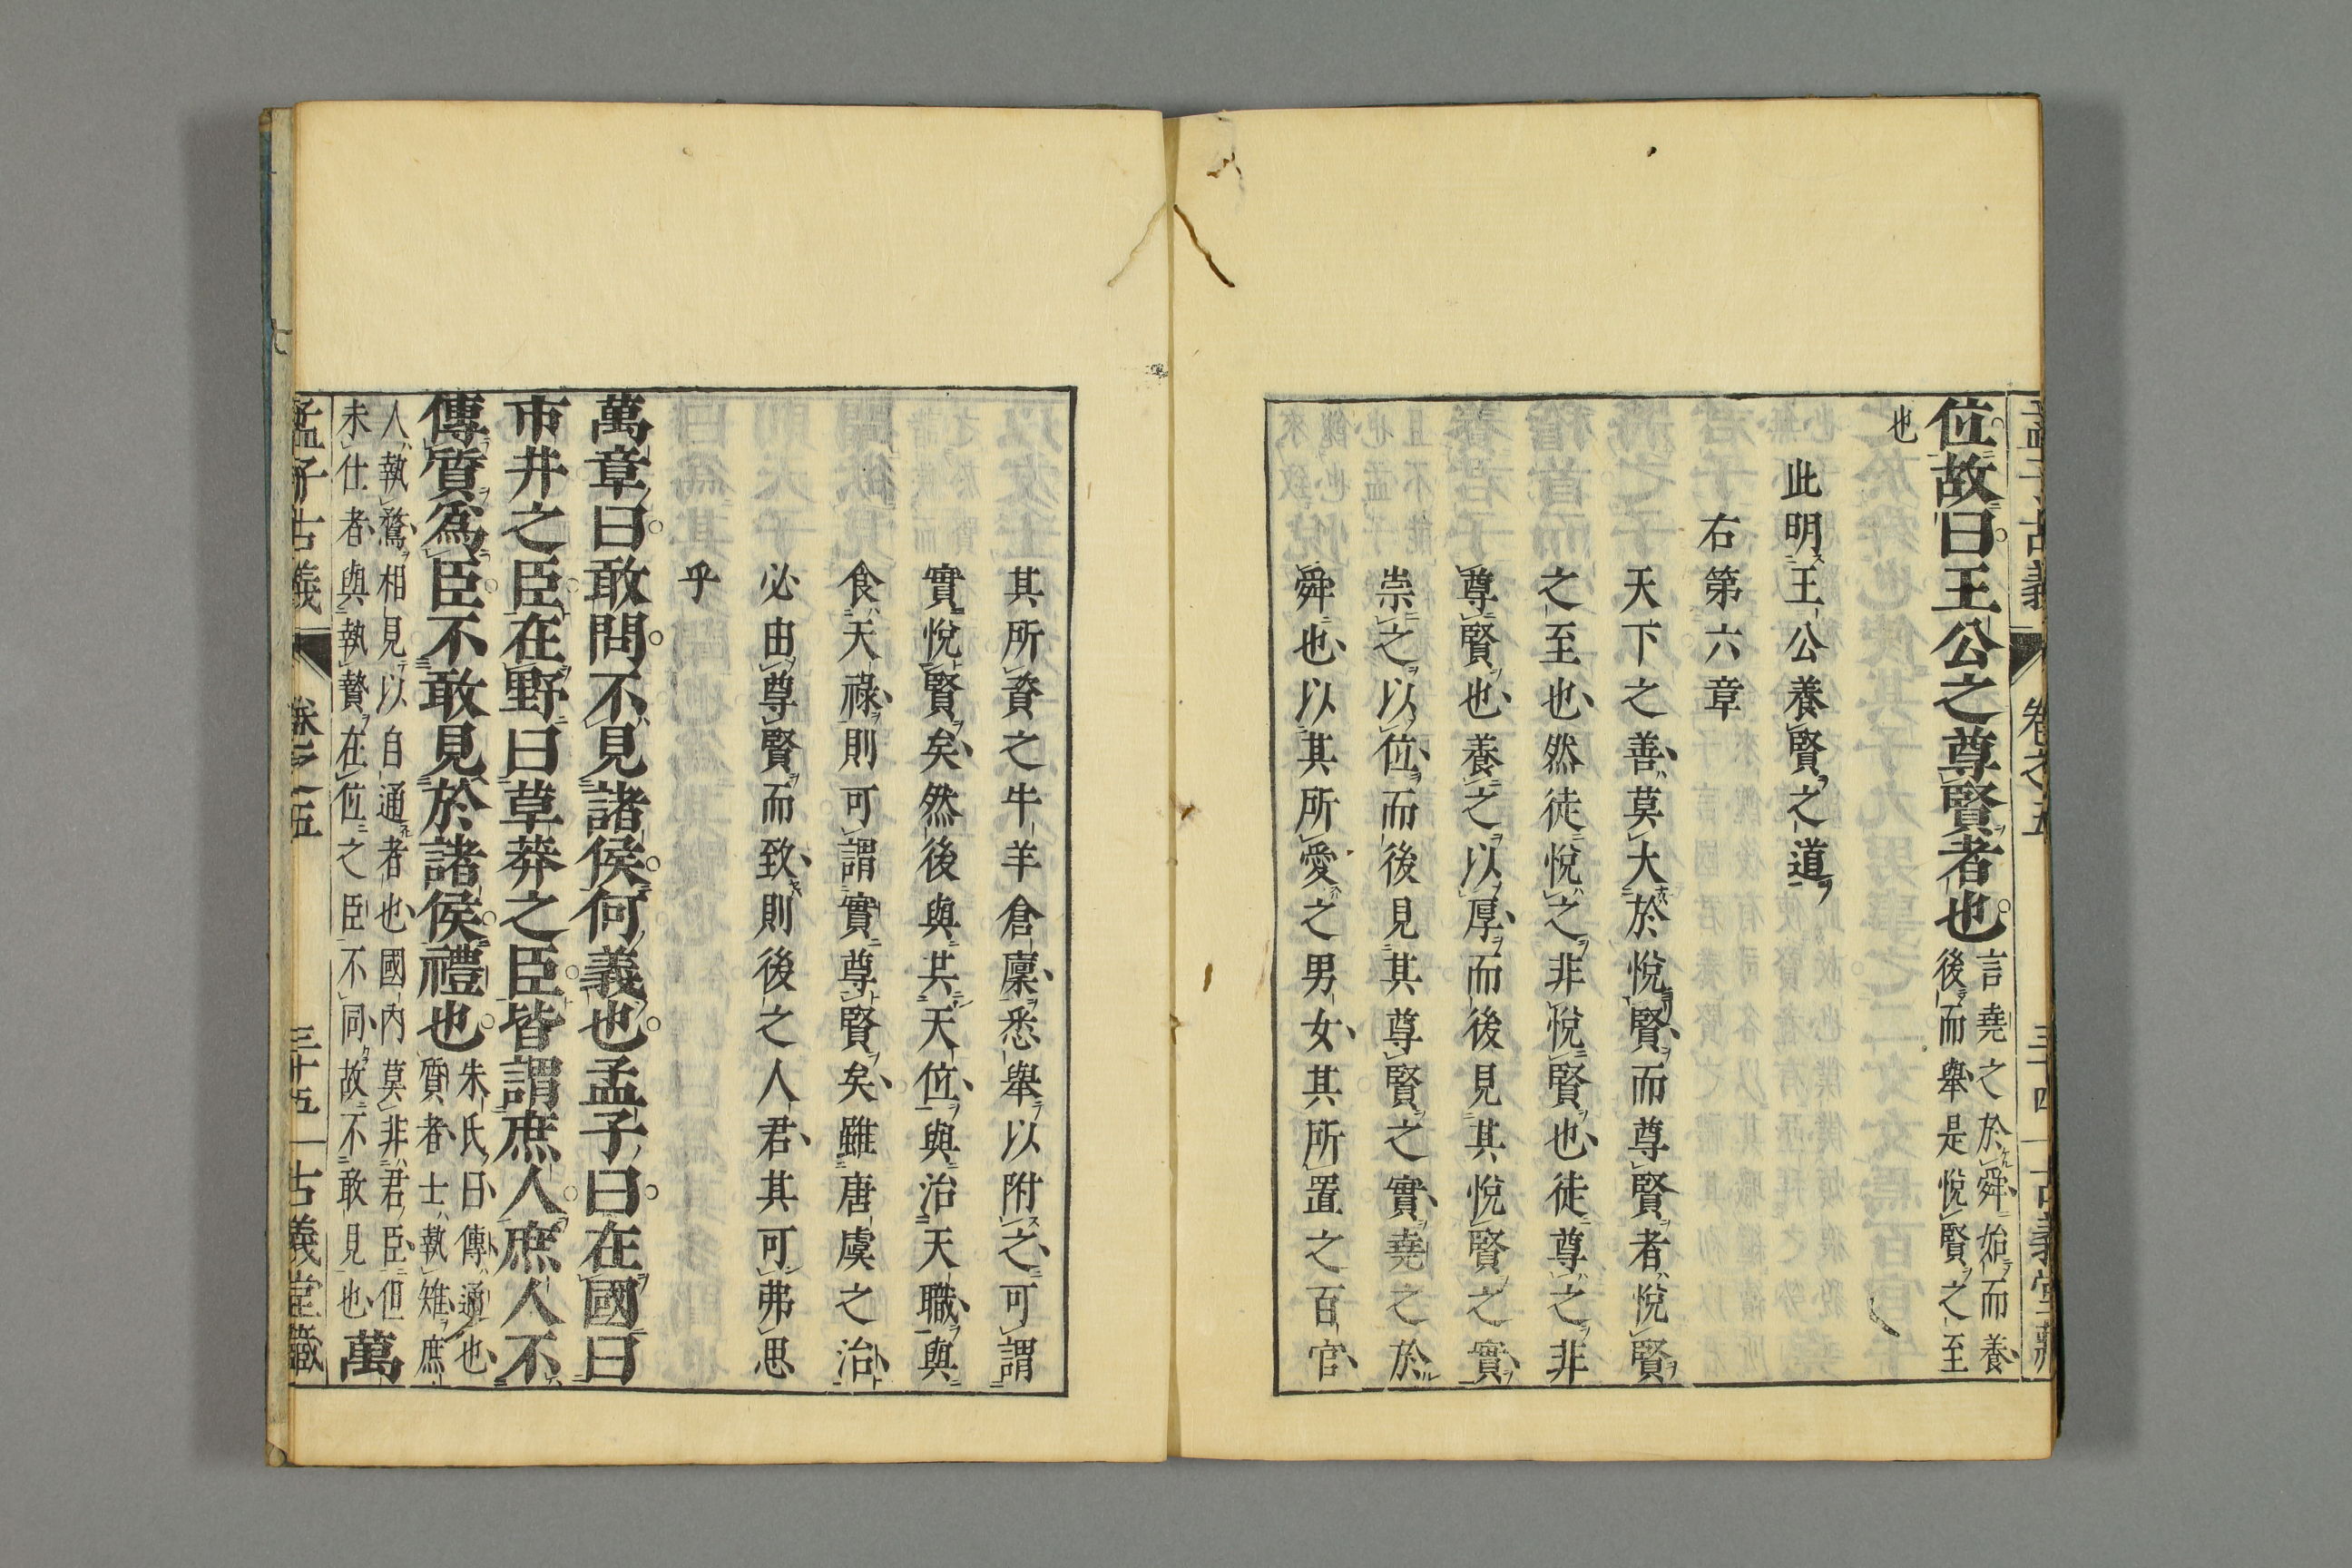 孟子古義 卷之五 三十四 古義堂藏
位故曰王公之尊賢者也言堯之於舜始而養
後而舉是悅賢之至
也
此明王公養賢之道
右第六章
天下之善莫大於悅賢而尊賢者悅賢
之至也然徒悅之非悅賢也徒尊之非
尊賢也養之以厚而後見其悅賢之實
崇之以位而後見其尊賢之實堯之於
舜也以其所愛之男女其所置之百官
其所資之牛羊倉廩悉舉以附之可謂
實悅賢矣然後與共天位與治天職與
食天祿則可謂實尊賢矣雖唐虞之治
必由尊賢而致則後之人君其可弗思
乎
萬章曰敢問不見諸侯何義也孟子曰在國曰
市井之臣在野曰草莽之臣皆謂庶人庶人不
傳質爲臣不敢見於諸侯禮也朱氏曰傳通也
質者士執雉庶
人執鶩相見以自通者也國內莫非君臣但
未仕者與執贄在位之臣不同故不敢見也萬
孟子古義 卷之五 三十五 古義堂藏